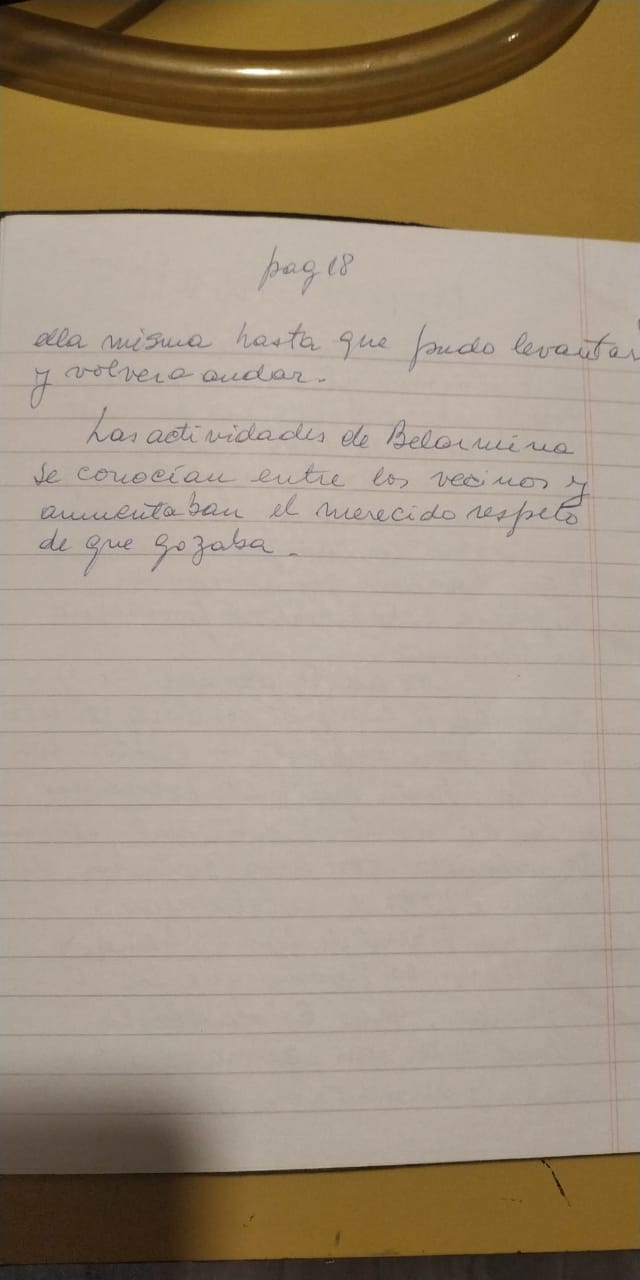 pag 18
ella misma hasta que pudo levantar
y volver a andar.
Las actividades de Belarmina
se conocían entre los vecinos y
aumentaban el merecido respeto
de que gozaba.